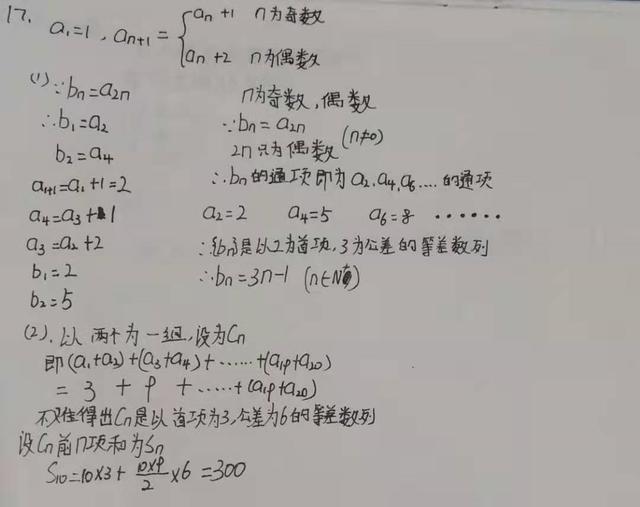 17. a₁=1, aₙ₊₁= { aₙ+1 n为奇数
aₙ+2 n为偶数
(1) ∵bₙ=a₂ₙ
∴b₁=a₂
b₂=a₄
a₁₊₁=a₁+1=2
a₄=a₃+1
a₃=a₂+2
b₁=2
b₂=5
n为奇数,偶数
∵bₙ=a₂ₙ
2n只为偶数 (n≠0)
∴bₙ的通项即为a₂,a₄,a₆....的通项
a₂=2 a₄=5 a₆=8 ······
∴{bₙ}是以2为首项,3为公差的等差数列
∴bₙ=3n-1 (n∈N)
(2).以两个为一组,设为Cₙ
即(a₁+a₂)+(a₃+a₄)+······+(a₁₉+a₂₀)
= 3 + 9 +······+(a₁₉+a₂₀)
不难得出Cₙ是以首项为3,公差为6的等差数列
设Cₙ前n项和为Sₙ
S₁₀=10×3+ 10×9/2 ×6 =300